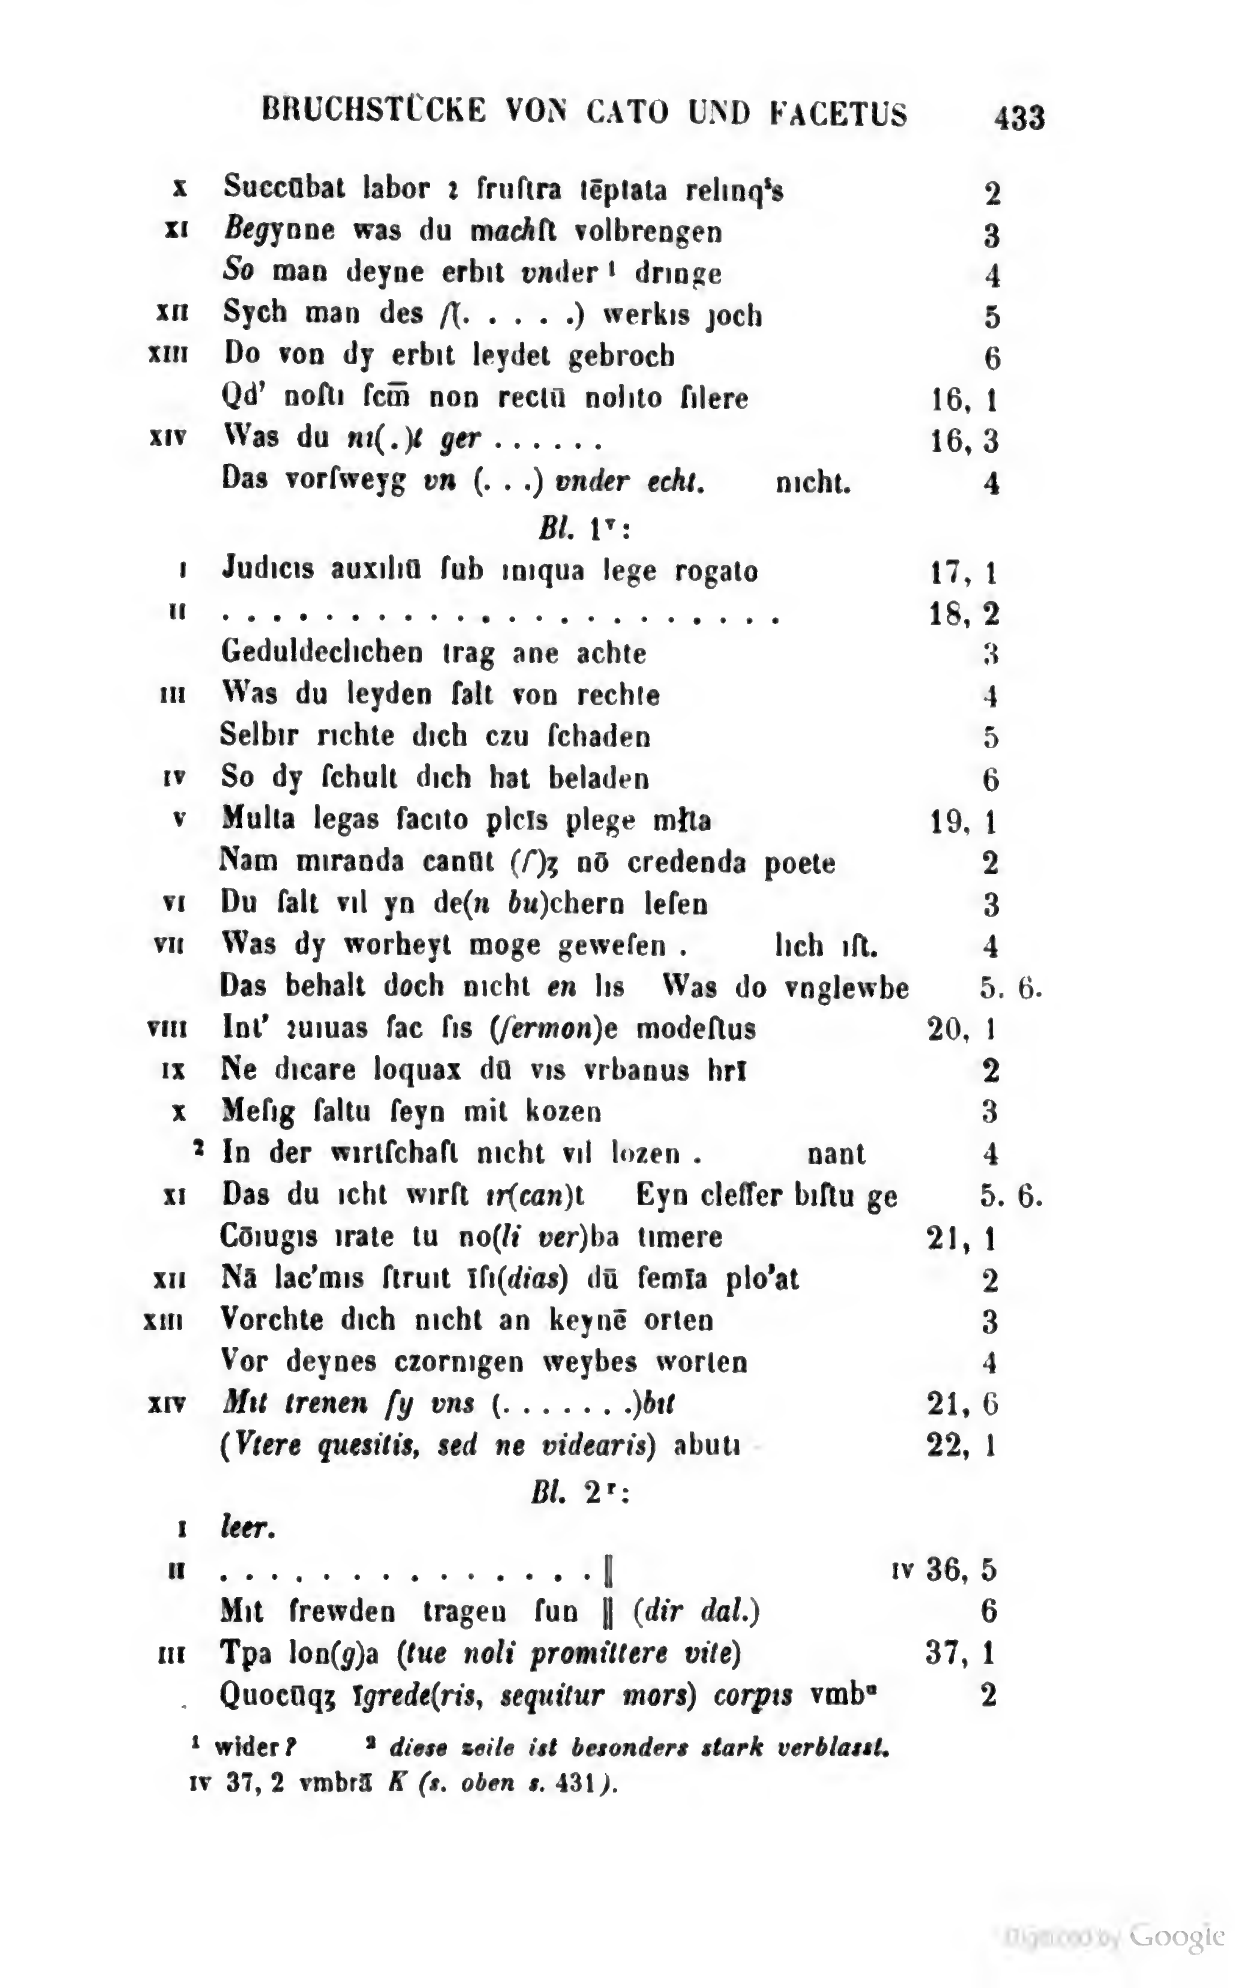 BRUCHSTÜCKE VON CATO UND FACETUS 433
X Succūbat labor ꝛ fruſtra tēptata relınqˢs 2
XI Begynne was du machſt volbrengen 3
So man deyne erbıt vnder ¹ drınge 4
XII Sych man des ſ(. . . . .) werkıs ȷoch 5
XIII Do von dy erbıt leydet gebroch 6
Qd' noſtı ſcm̄ non rectū nolıto ſılere 16, 1
XIV Was du nı(.)t ger . . . . . . 16, 3
Das vorſweyg vn (. . .) vnder echt. nıcht. 4
Bl. 1ᵛ:
I Judıcıs auxılıū ſub ınıqua lege rogato 17, 1
II . . . . . . . . . . . . . . . . . . . . . . 18, 2
Geduldeclıchen trag ane achte 3
III Was du leyden ſalt von rechte 4
Selbır rıchte dıch czu ſchaden 5
IV So dy ſchult dıch hat beladen 6
V Multa legas facıto plcīs plege młta 19, 1
Nam mıranda canūt (ſ)ꝫ nō credenda poete 2
VI Du ſalt vıl yn de(n bu)chern leſen 3
VII Was dy worheyt moge geweſen . lıch ıſt. 4
Das behalt doch nıcht en lıs Was do vnglewbe 5. 6.
VIII Int' ꝛuıuas fac ſıs (ſermon)e modeſtus 20, 1
IX Ne dıcare loquax dū vıs vrbanus hrī 2
X Meſıg ſaltu ſeyn mit kozen 3
² In der wırtſchaft nıcht vıl lozen . nant 4
XI Das du ıcht wırſt ır(can)t Eyn cleffer bıſtu ge 5. 6.
Cōıugıs ırate tu no(li ver)ba tımere 21, 1
XII Nā lac'mıs ſtruıt īſı(dias) dū femīa plo'at 2
XIII Vorchte dıch nıcht an keynē orten 3
Vor deynes czornıgen weybes worten 4
XIV Mıt trenen ſy vns (. . . . . . .)bıt 21, 6
(Vtere quesitis, sed ne videaris) abutı 22, 1
Bl. 2ʳ:
I leer.
II . . . . . . . . . . . . . . ‖ IV 36, 5
Mıt frewden tragen ſun ‖ (dir dal.) 6
III Tpa lon(g)a (tue noli promittere vite) 37, 1
Quocūqꝫ īgrede(ris, sequitur mors) corpıs vmbᵃ 2
¹ wider? ² diese zeile ist besonders stark verblasst.
IV 37, 2 vmbrā K (s. oben s. 431).
Digitized by Google